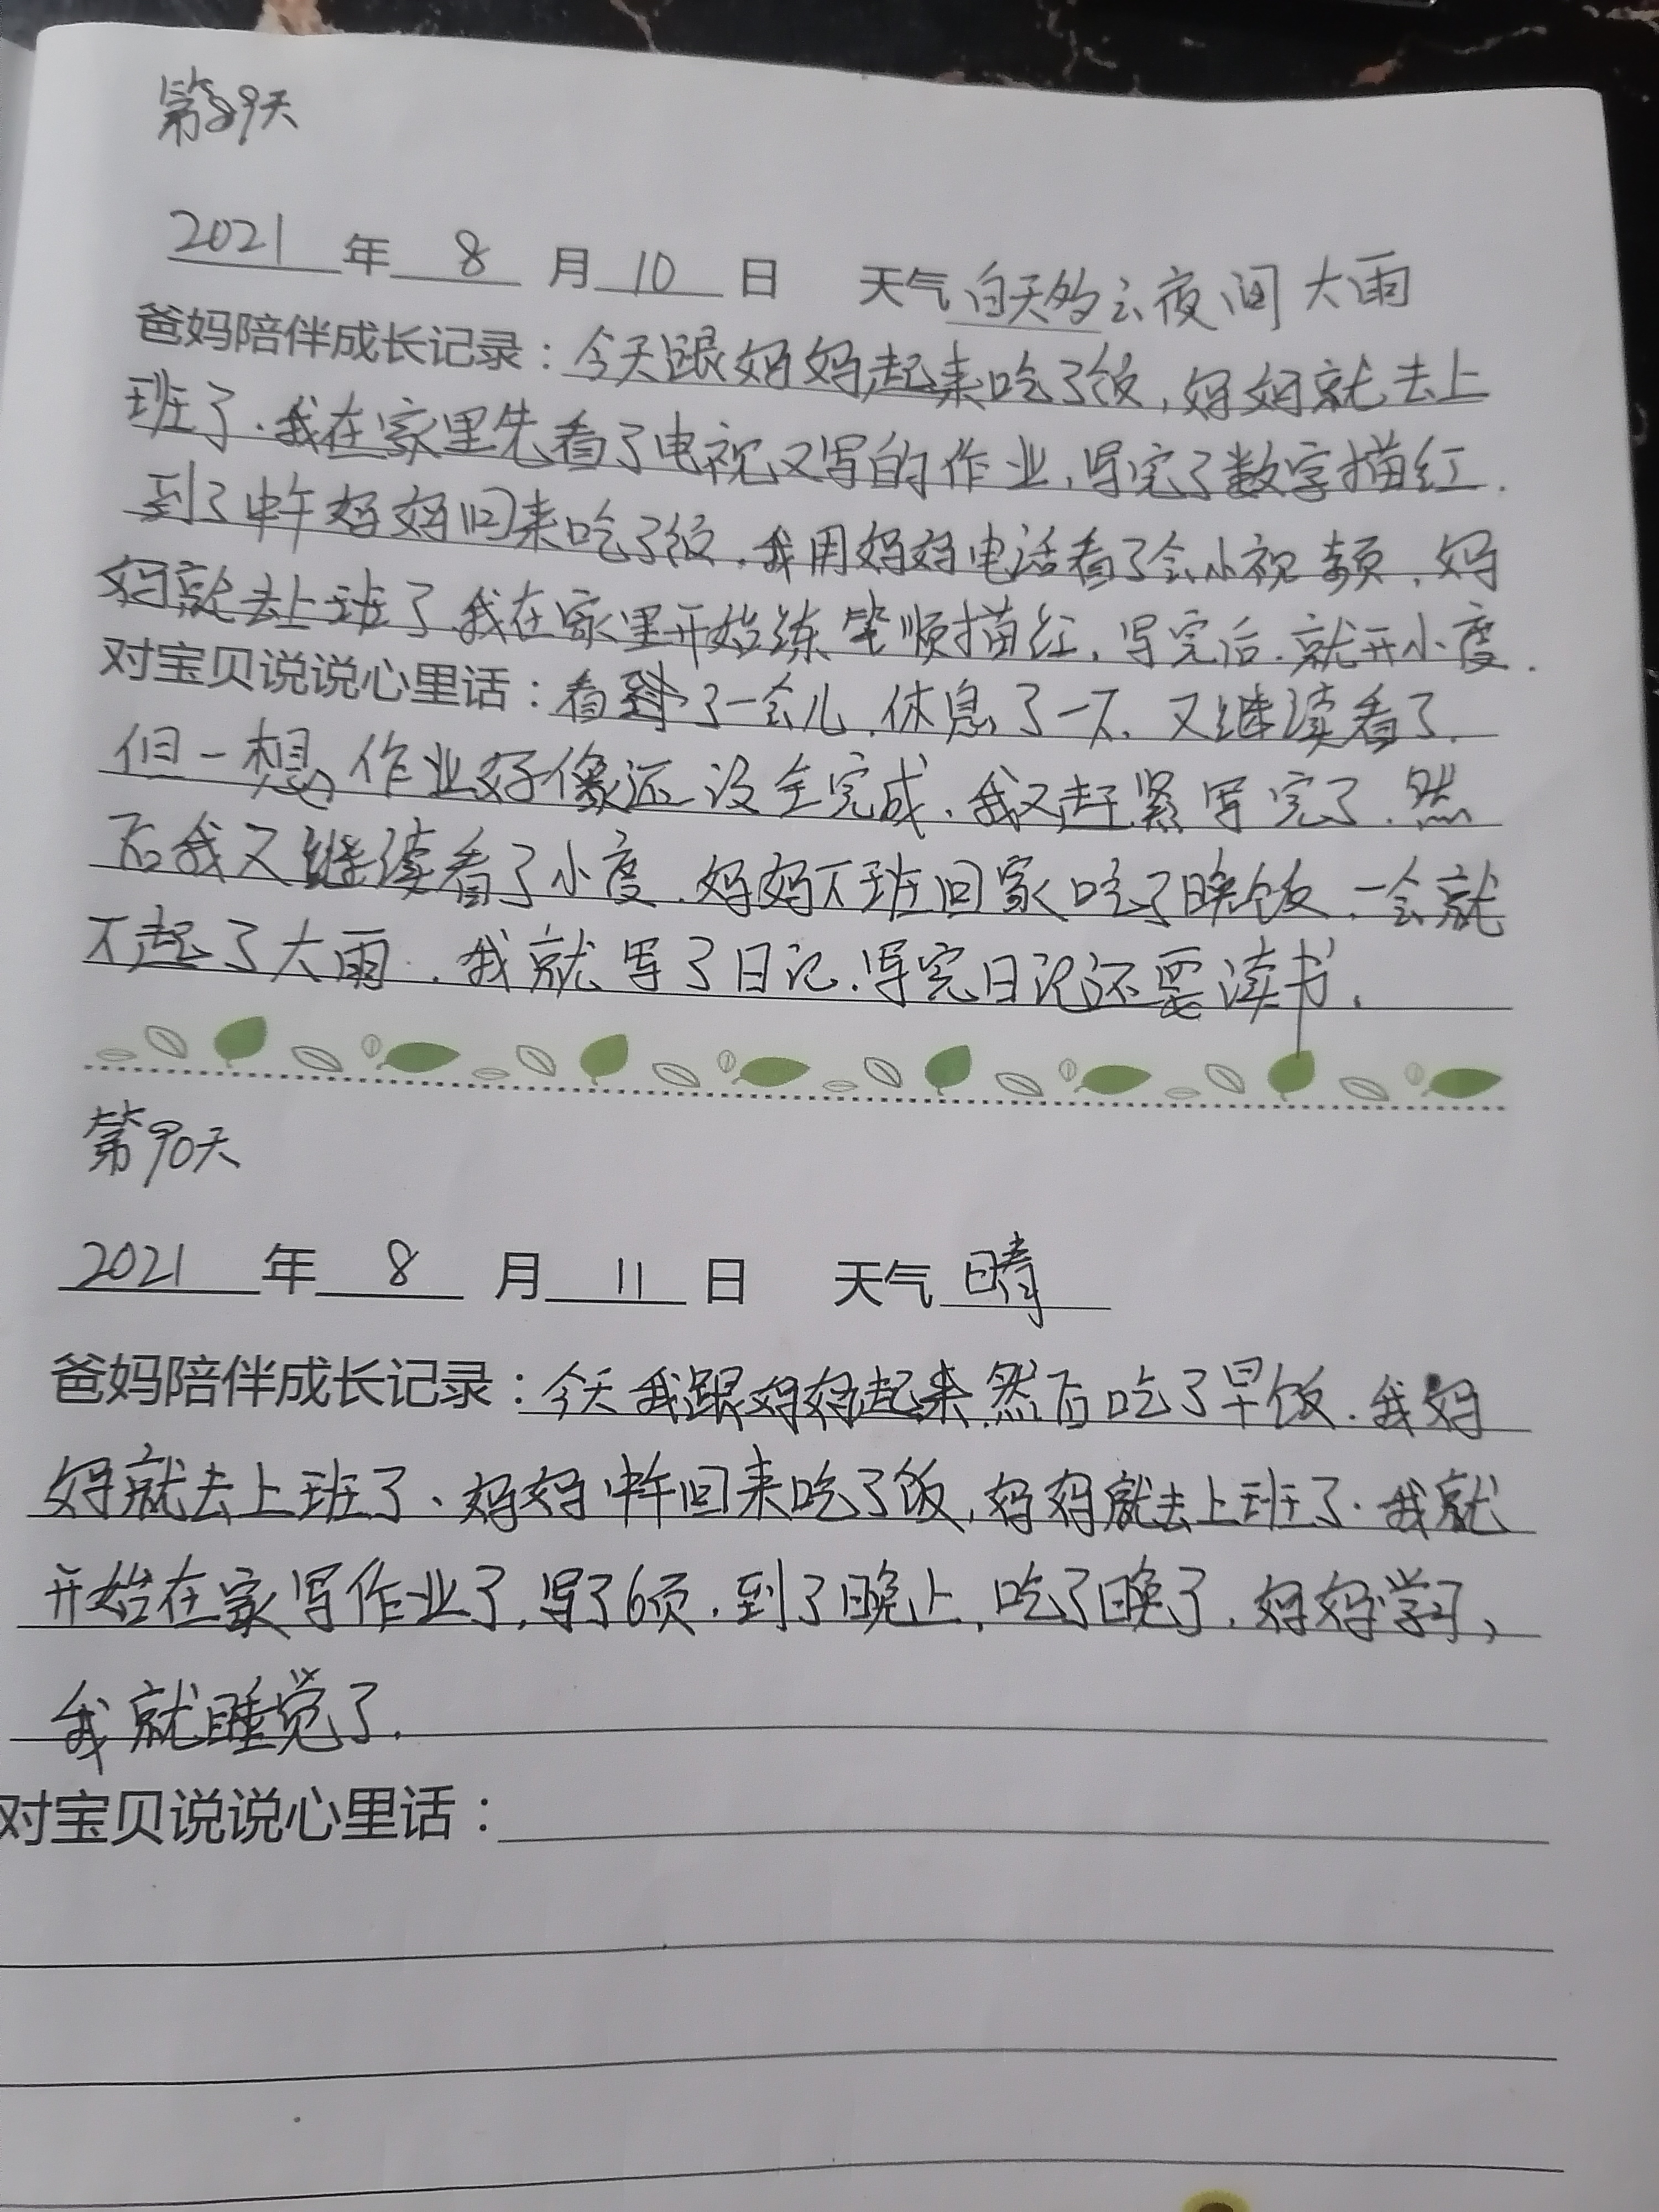 第89天
2021年8月10日 天气白天多云夜间大雨
爸妈陪伴成长记录：今天跟妈妈起来吃了饭，妈妈就去上
班了.我在家里先看了电视又写的作业,写完了数字描红.
到了中午妈妈回来吃了饭.我用妈妈电话看了会小视频,妈
妈就去上班了.我在家里开始练笔顺描红,写完后.就开小度.
对宝贝说说心里话：看了一会儿.休息了一下.又继续看了.
但一想,作业好像还没全完成.我又赶紧写完了.然
后我又继续看了小度.妈妈下班回家吃了晚饭.一会就
下起了大雨.我就写了日记.写完日记还要读书.
第90天
2021年8月11日 天气晴
爸妈陪伴成长记录：今天我跟妈妈起来.然后吃了早饭.我妈
妈就去上班了、妈妈中午回来吃了饭,妈妈就去上班了.我就
开始在家写作业了,写了6页.到了晚上,吃了晚了.妈妈学习,
我就睡觉了.
对宝贝说说心里话：